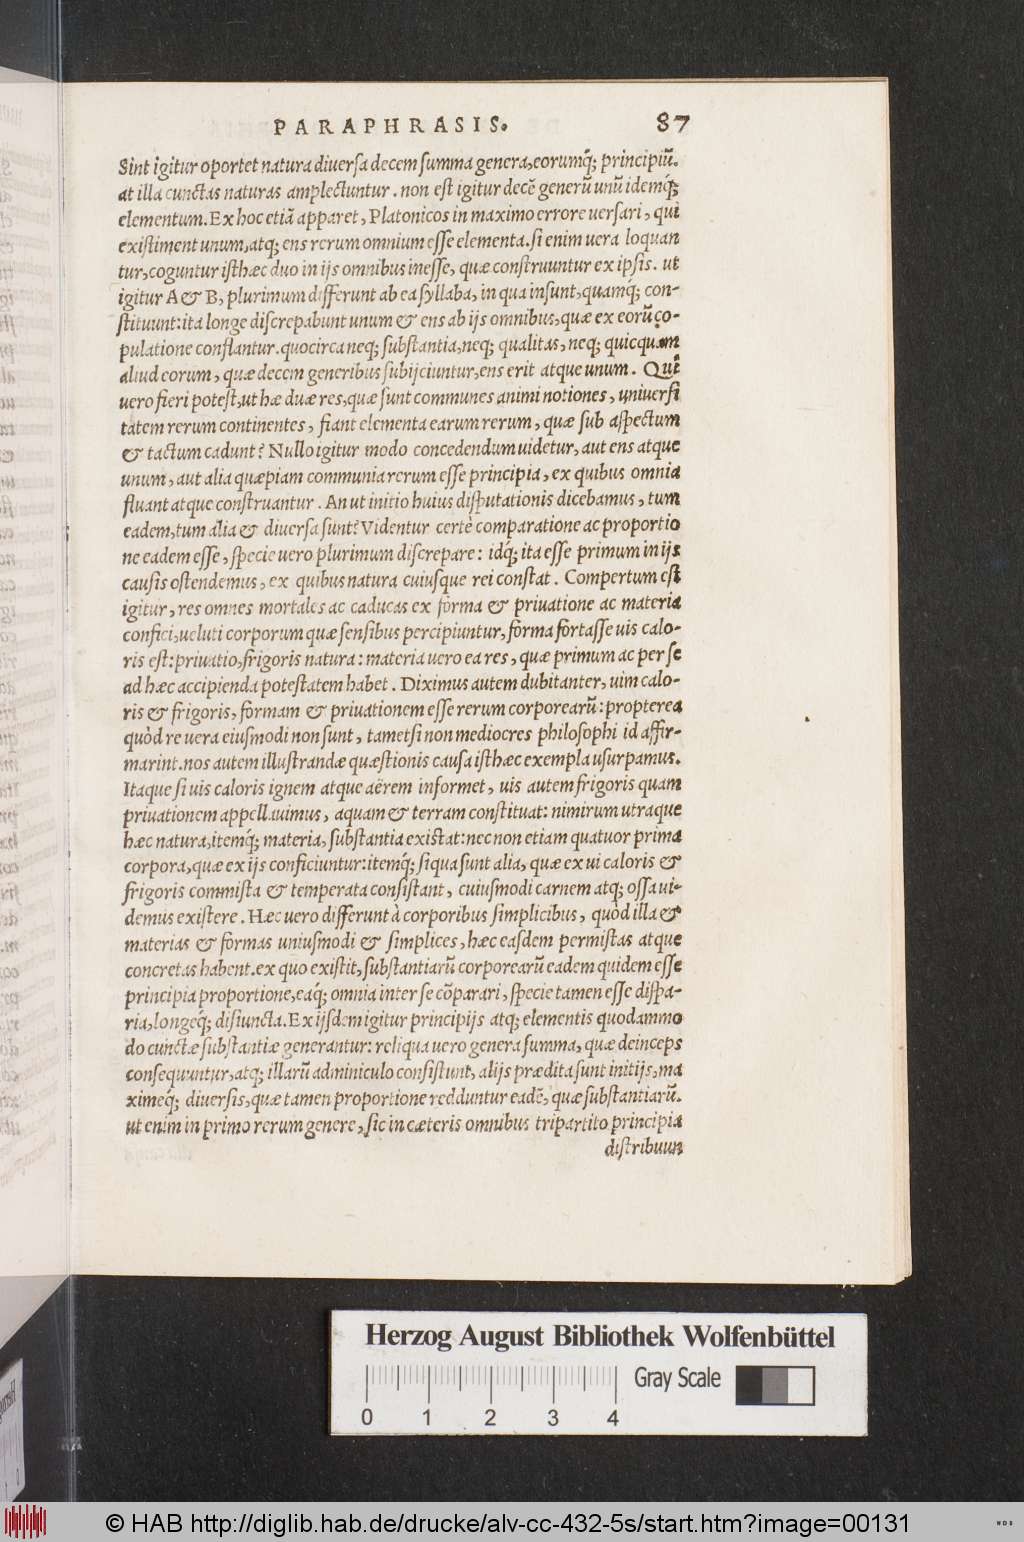 PARAPHRASIS. 87
Sint igitur oportet natura diuersa decem summa genera, eorumq́; principiũ.
at illa cunctas naturas amplectuntur. non est igitur decẽ generũ unũ idemq́;
elementum. Ex hoc etiã apparet, Platonicos in maximo errore uersari, qui
existiment unum, atq; ens rerum omnium esse elementa. si enim uera loquan
tur, coguntur isthæc duo in ijs omnibus inesse, quæ construuntur ex ipsis. ut
igitur A & B, plurimum differunt ab ea syllaba, in qua insunt, quamq́; con-
stituunt: ita longe discrepabunt unum & ens ab ijs omnibus, quæ ex eorũ co-
pulatione conflantur. quocirca neq; substantia, neq; qualitas, neq; quicquam
aliud eorum, quæ decem generibus subijciuntur, ens erit atque unum. Quî
uero fieri potest, ut hæ duæ res, quæ sunt communes animi notiones, uniuersi
tatem rerum continentes, fiant elementa earum rerum, quæ sub aspectum
& tactum cadunt? Nullo igitur modo concedendum uidetur, aut ens atque
unum, aut alia quæpiam communia rerum esse principia, ex quibus omnia
fluant atque construantur. An ut initio huius disputationis dicebamus, tum
eadem, tum alia & diuersa sunt? Videntur certè comparatione ac proportio
ne eadem esse, specie uero plurimum discrepare: idq́; ita esse primum in ijs
causis ostendemus, ex quibus natura cuiusque rei constat. Compertum est
igitur, res omnes mortales ac caducas ex forma & priuatione ac materia
confici, ueluti corporum quæ sensibus percipiuntur, forma fortasse uis calo-
ris est: priuatio, frigoris natura: materia uero ea res, quæ primum ac per se
ad hæc accipienda potestatem habet. Diximus autem dubitanter, uim calo-
ris & frigoris, formam & priuationem esse rerum corporearũ: propterea
quòd re uera eiusmodi non sunt, tametsi non mediocres philosophi id affir-
marint. nos autem illustrandæ quæstionis causa isthæc exempla usurpamus.
Itaque si uis caloris ignem atque aërem informet, uis autem frigoris quam
priuationem appellauimus, aquam & terram constituat: nimirum utraque
hæc natura, itemq́; materia, substantia existat: nec non etiam quatuor prima
corpora, quæ ex ijs conficiuntur: itemq́; siqua sunt alia, quæ ex ui caloris &
frigoris commista & temperata consistant, cuiusmodi carnem atq; ossa ui-
demus existere. Hæc uero differunt à corporibus simplicibus, quòd illa &
materias & formas uniusmodi & simplices, hæc easdem permistas atque
concretas habent. ex quo existit, substantiarũ corporearũ eadem quidem esse
principia proportione, eaq́; omnia inter se cõparari, specie tamen esse dispa-
ria, longeq́; disiuncta. Ex ijsdem igitur principijs atq; elementis quodammo
do cunctæ substantiæ generantur: reliqua uero genera summa, quæ deinceps
consequuntur, atq; illarũ adminiculo consistunt, alijs prædita sunt initijs, ma
ximeq́; diuersis, quæ tamen proportione redduntur eadẽ, quæ substantiarũ.
ut enim in primo rerum genere, sic in cæteris omnibus tripartito principia
distribuun
Herzog August Bibliothek Wolfenbüttel
Gray Scale
0 1 2 3 4
© HAB http://diglib.hab.de/drucke/alv-cc-432-5s/start.htm?image=00131